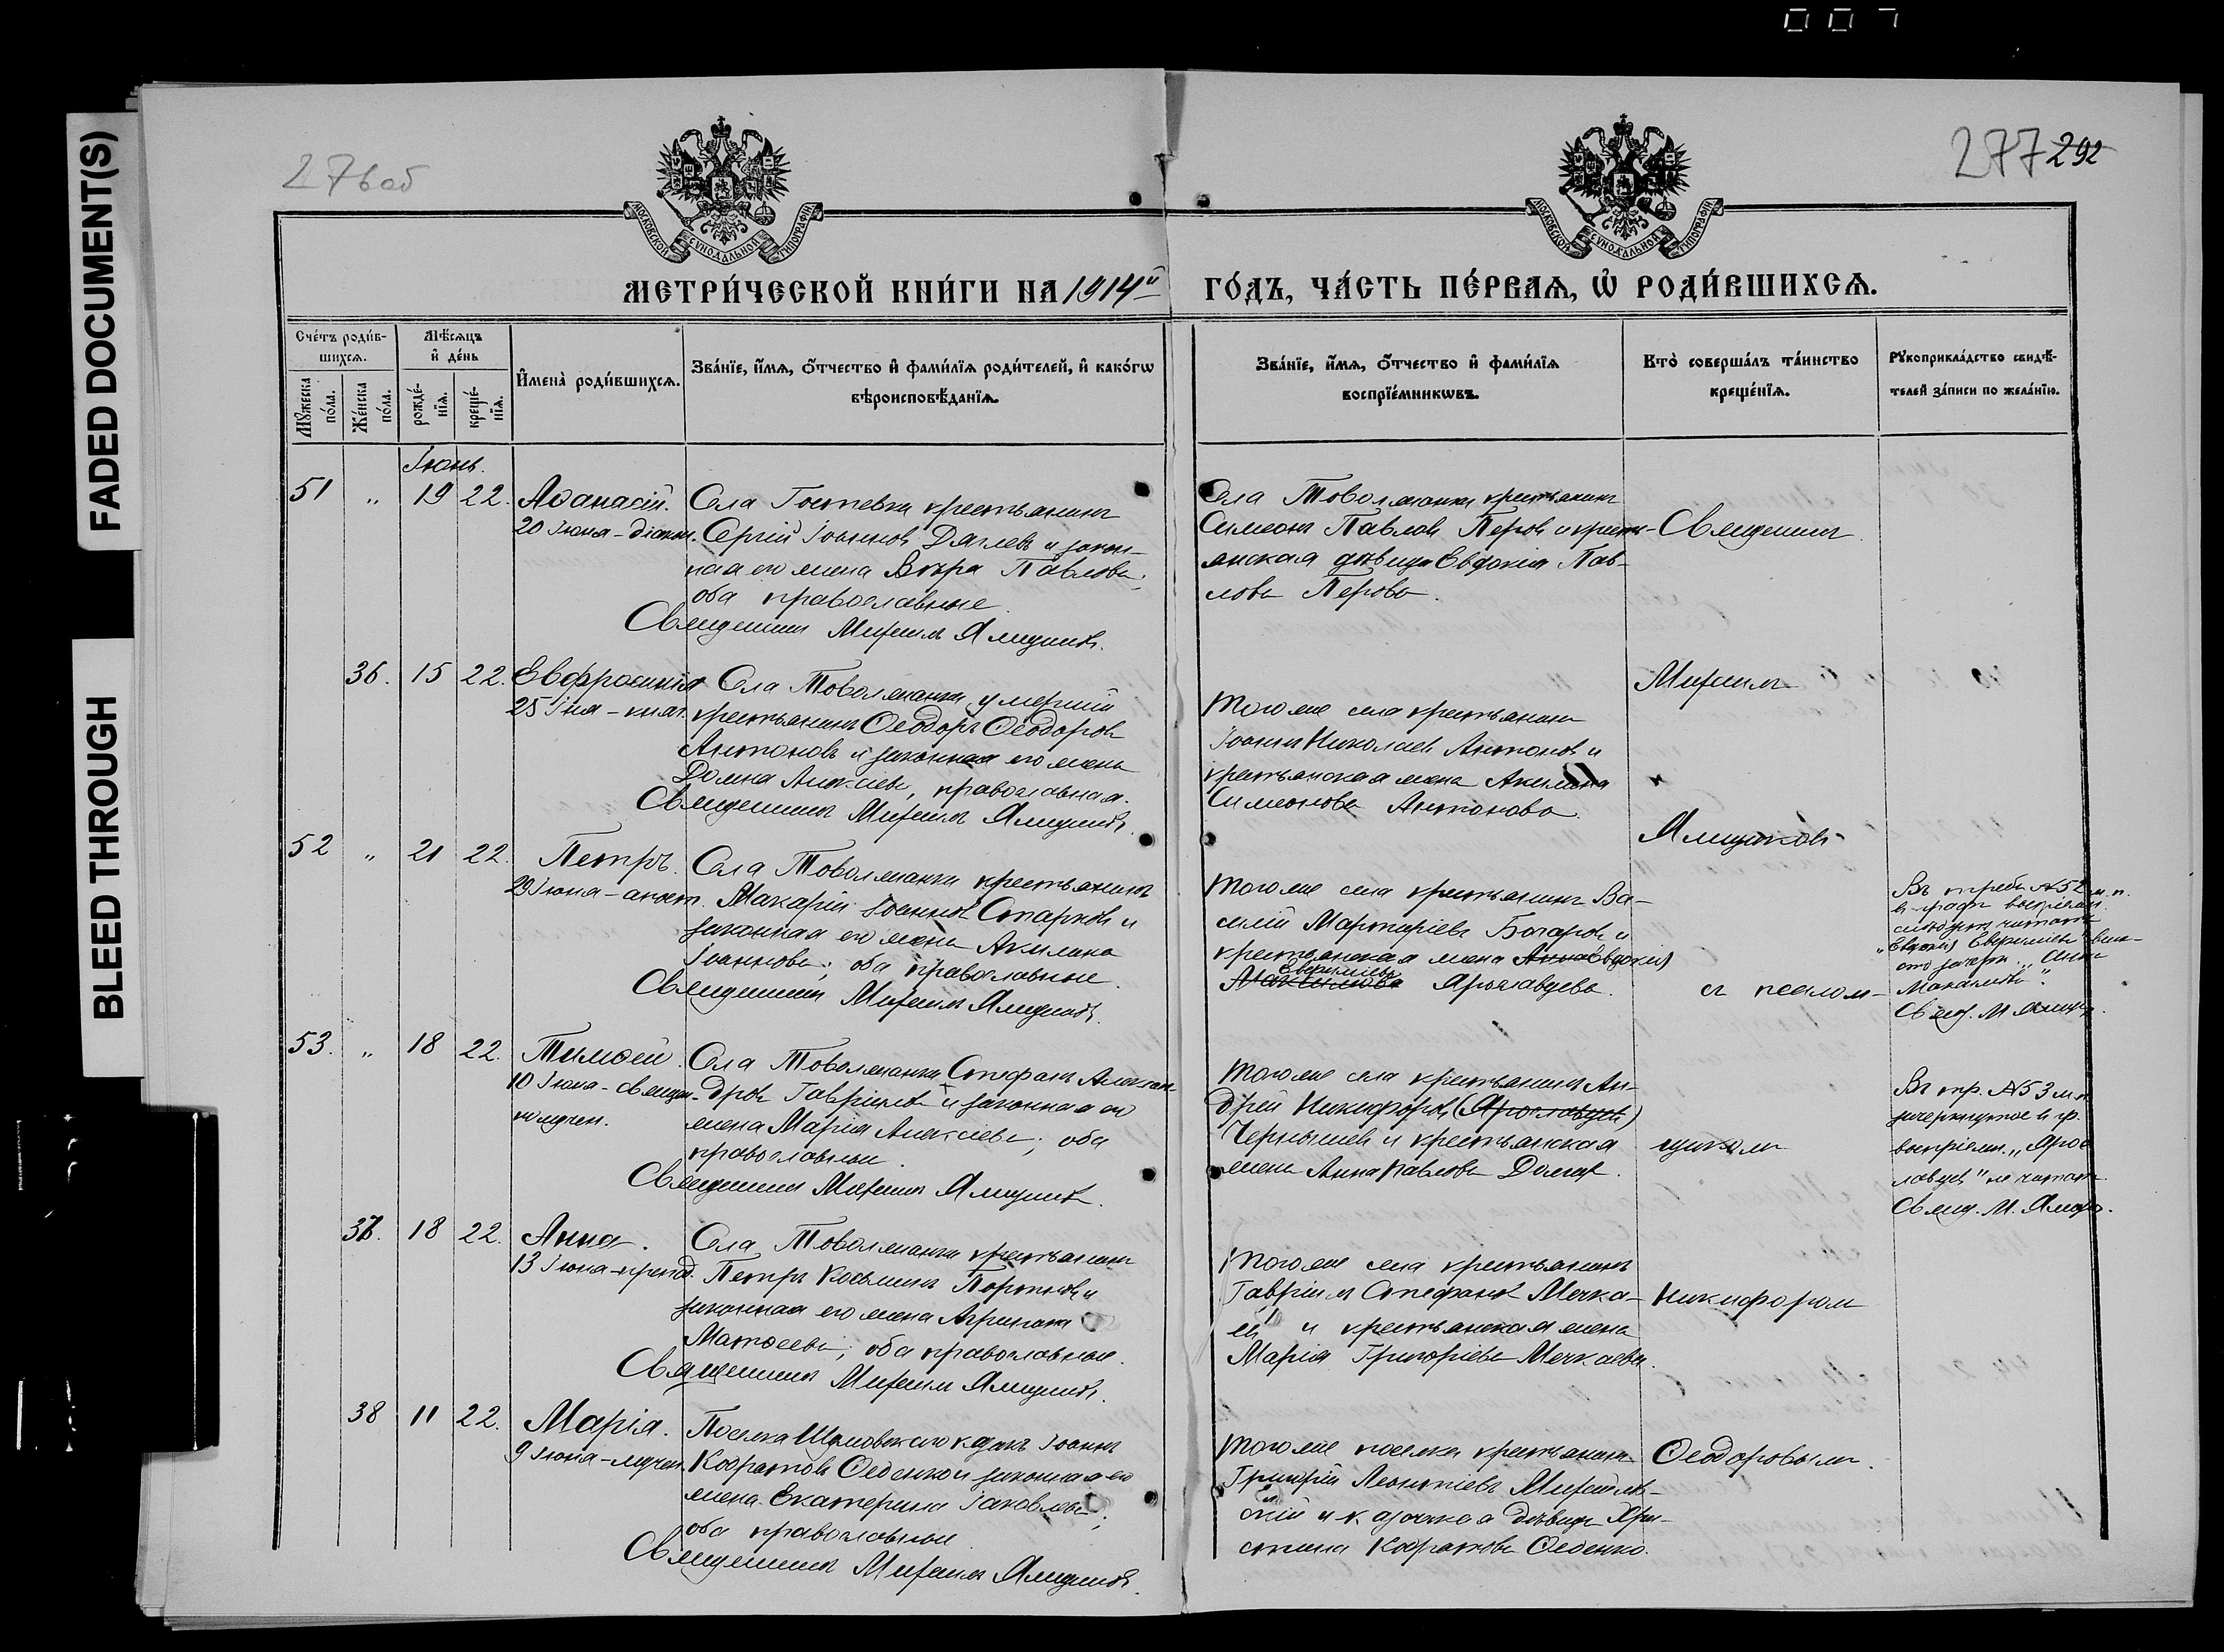 FADED DOCUMENT(S)
BLEED THROUGH
276 об
277 292
МОСКОВСКОЙ СѴНОДАЛЬНОЙ ТИПОГРАФІИ
МОСКОВСКОЙ СѴНОДАЛЬНОЙ ТИПОГРАФІИ
МЕТРИ́ЧЕСКОЙ КНИ́ГИ НА 1914й ГО́ДЪ, ЧА́СТЬ ПЕ́РВАѦ, Ѡ҆ РОДИ́ВШИХСѦ.
Сче́тъ роди́в-
шихсѧ.
Мꙋ́жеска по́ла.
Же́нска по́ла.
Мѣ́сѧцъ
и҆ де́нь
рожде́-
нїѧ.
креще́-
нїѧ.
И҆мена̀ роди́вшихсѧ.
Зва́нїе, и҆́мѧ, ѻ҆́тчество и҆ фами́лїѧ роди́телей, и҆ како́гѡ
вѣроисповѣ́данїѧ.
Зва́нїе, и҆́мѧ, ѻ҆́тчество и҆ фами́лїѧ
воспрїе́мникѡвъ.
Кто̀ соверша́лъ та́инство
креще́нїѧ.
Рꙋкоприкла́дство свидѣ́-
телей за́писи по жела́нїю.
Іюнь.
51 " 19 22. Аѳанасій.
20 Іюня - діакон.
Села Гостевки крестьянинъ
Сергій Іоанновъ Дяглевъ и закон-
ная его жена Вѣра Павлова;
оба православные.
Священникъ Михаилъ Ямщиковъ.
Села Товолжанки крестьянинъ
Симеонъ Павловъ Перовъ и кресть-
янская дѣвица Евдокія Пав-
лова Перова.
Священникъ
36. 15 22. Евфросинія
25 Іюня - княг.
Села Товолжанки умершій
крестьянинъ Ѳеодоръ Ѳеодоровъ
Антоновъ и законная его жена
Домна Алексіева, православная.
Священникъ Михаилъ Ямщиковъ.
Того же села крестьянинъ
Іоаннъ Николаевъ Антоновъ и
крестьянская жена Акилина
Симеонова Антонова.
Михаилъ
52 " 21 22. Петръ.
29 Іюня - апост.
Села Товолжанки крестьянинъ
Макарій Іоанновъ Старковъ и
законная его жена Акилина
Іоаннова; оба православные.
Священникъ Михаилъ Ямщиковъ.
Того же села крестьянинъ Ва-
силій Мартиріевъ Бочаровъ и
крестьянская жена Анна Евдокія
Евфиміева
Ярославцева.
Ямщиковъ
съ псалом-
Въ требѣ №52 м. п.
въ графѣ воспріем.
слѣдуетъ читать
"Евдокія Евфиміева" вмѣ-
сто зачерк. "Анна
Свящ. М. Ямщик.
53. " 18 22. Тимоѳей.
10 Іюня - священ-
номучен.
Села Товолжанки Стефанъ Алексан-
дровъ Гавриловъ и законная его
жена Марія Алексіева; оба
православные.
Священникъ Михаилъ Ямщиковъ.
Того же села крестьянинъ Ан-
дрей Никифоровъ (Ярославцевъ)
Чернышевъ и крестьянская
жена Анна Павлова
щикомъ
Въ тр. №53 м.п.
зачеркнутое въ гр.
воспріем. "Ярос-
лавцевъ" не читать
Свящ. М. Ямщик.
37. 18 22. Анна.
13 Іюня - препод.
Села Товолжанки крестьянинъ
Петръ Косьминъ Портновъ и
законная его жена Агрипина
Матѳеева; оба православные.
Священникъ Михаилъ Ямщиковъ.
Того же села крестьянинъ
Гавріилъ Стефановъ Мечка-
евъ и крестьянская жена
Марія Григоріева Мечкаева.
Никифоромъ
38 11 22. Марія.
9 Іюня - мучен.
Поселка казакъ Іоаннъ
Кодратовъ Ѳеденко и законная его
жена Екатерина Іаковлева;
оба православные.
Священникъ Михаилъ Ямщиковъ.
Того же поселка крестьянинъ
Григорій Леонтіевъ Михайлов-
скій и казачья дѣвица Хри-
стина Кодратова Ѳеденко.
Ѳеодоровымъ.